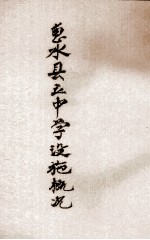 惠水县立中学设施概况